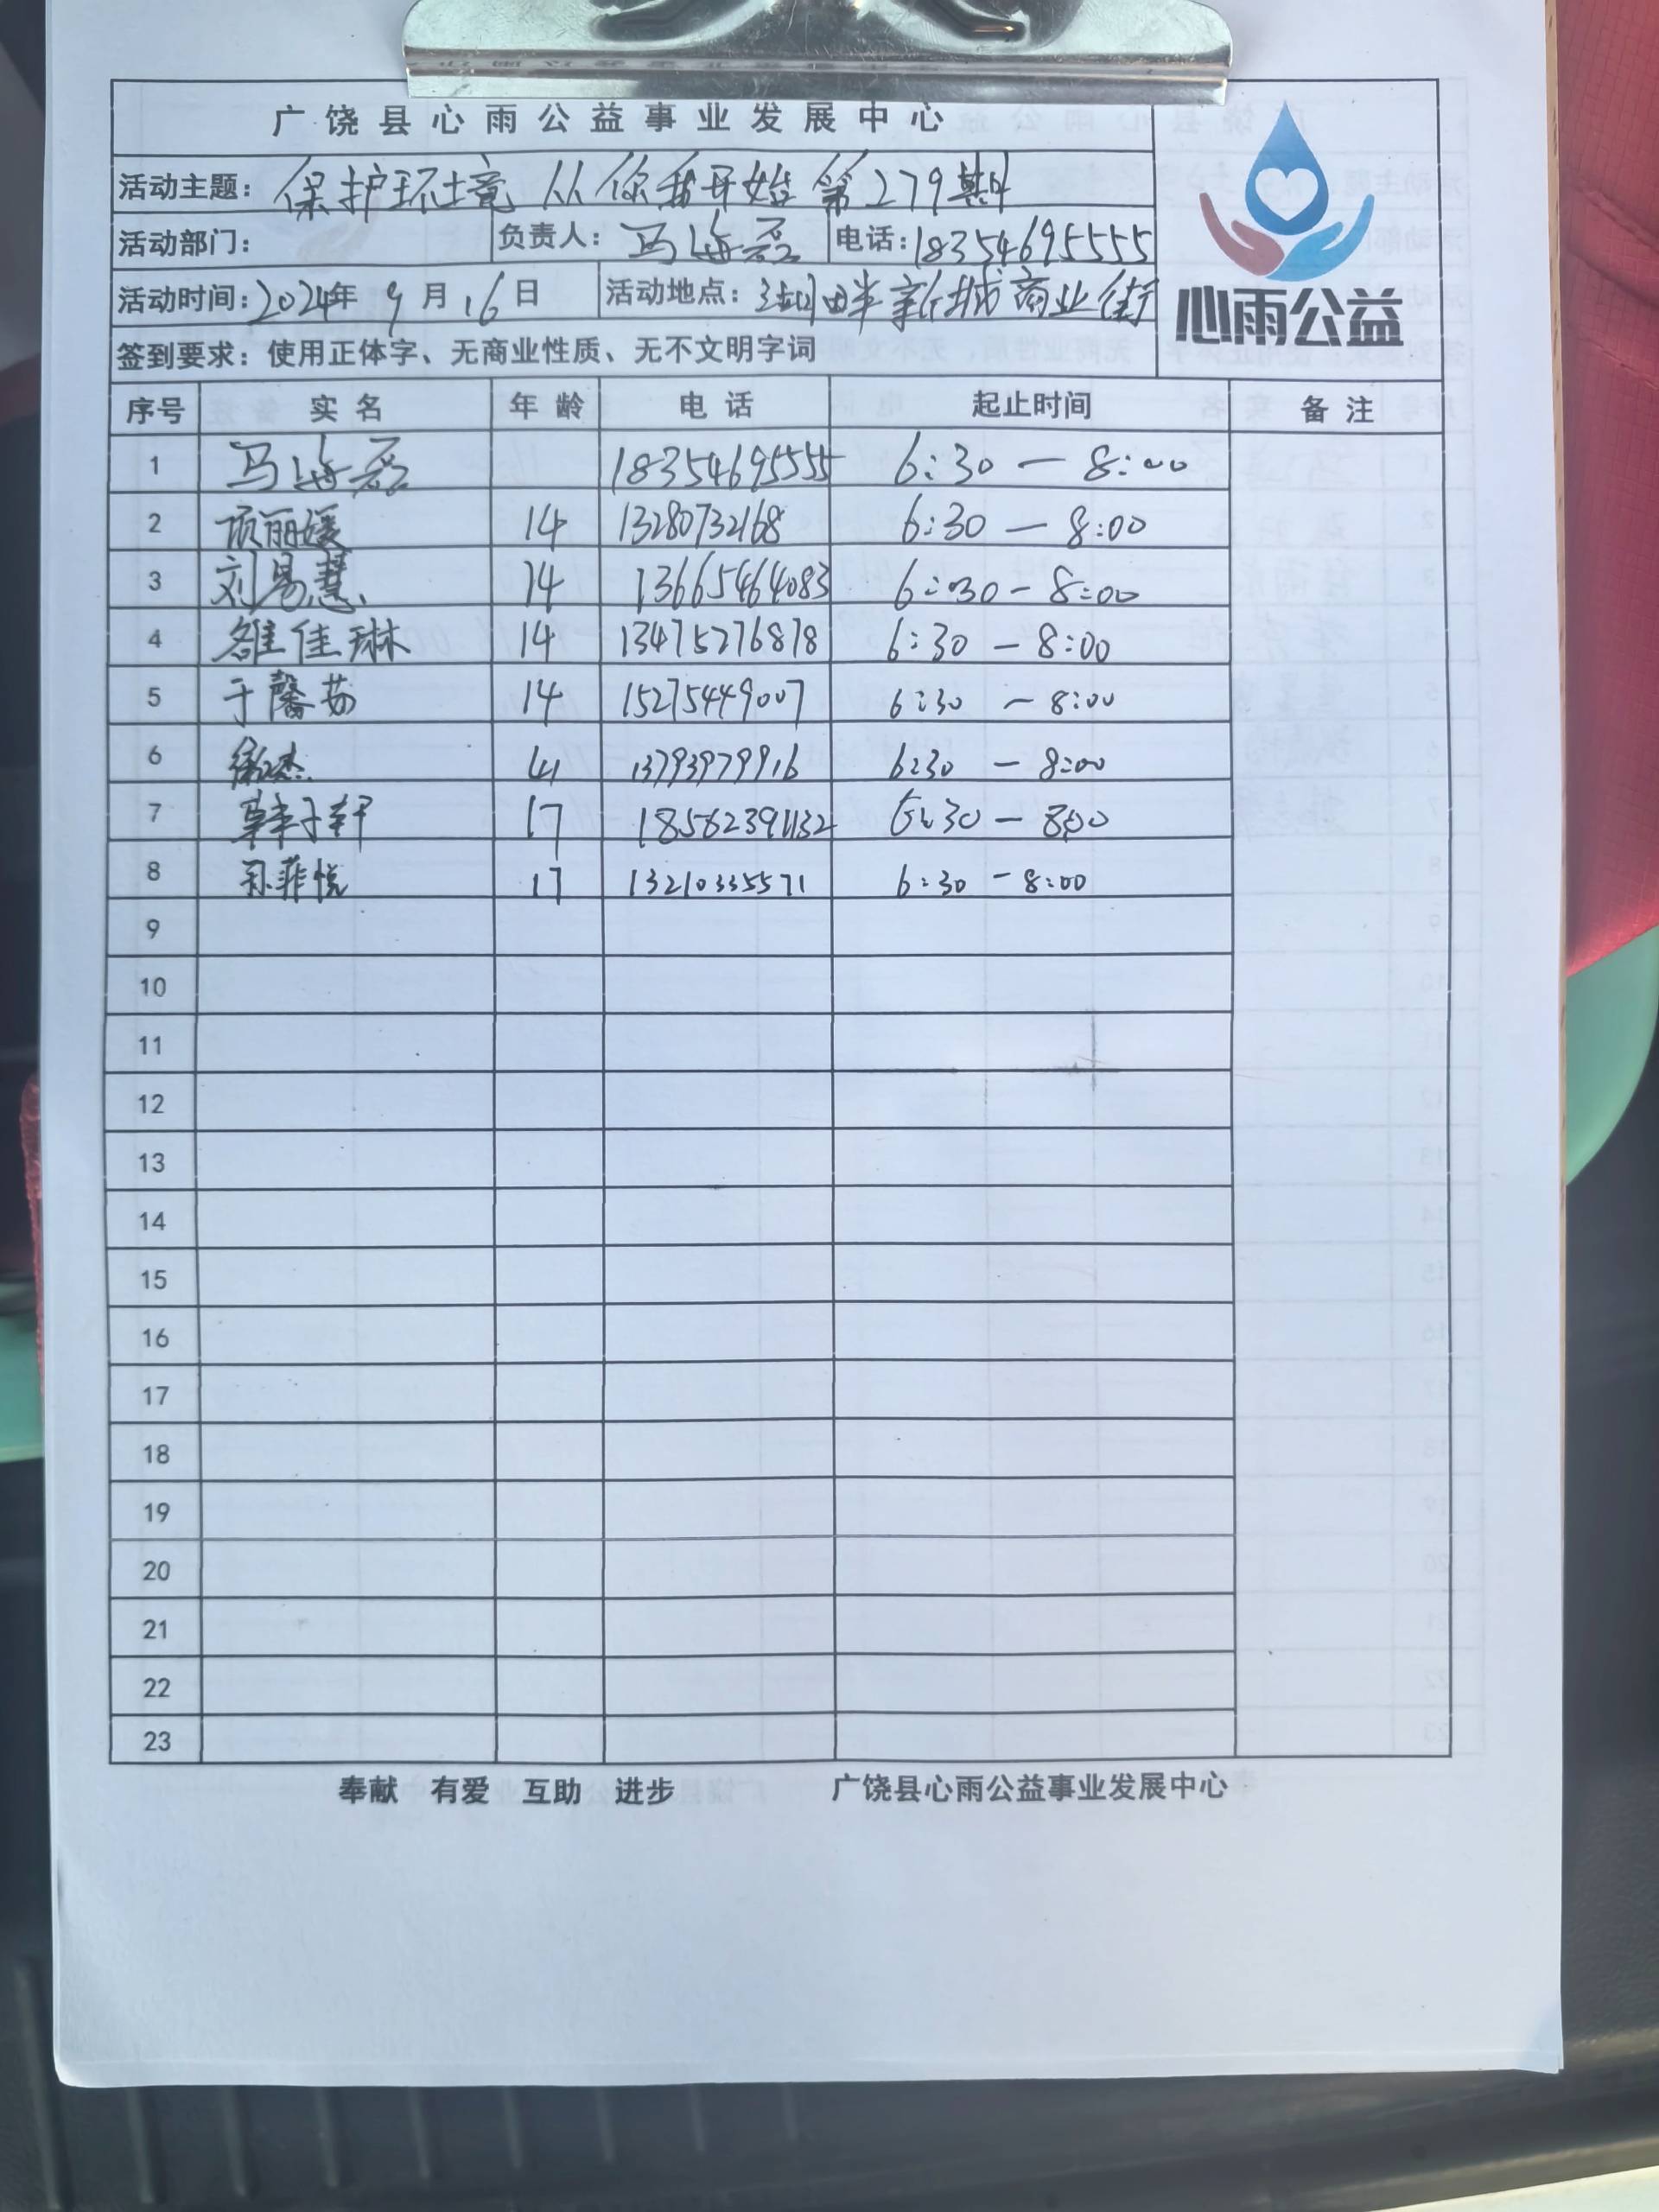 广饶县心雨公益事业发展中心
活动主题：保护环境 从你我开始 第279期
活动部门： 负责人：马海磊 电话：18354695555
活动时间：2024年9月16日 活动地点：湖畔新城商业街
心雨公益
签到要求：使用正体字、无商业性质、无不文明字词
序号 实名 年龄 电话 起止时间 备注
1 马海磊 18354695555 6:30 — 8:00
2 顾丽媛 14 13280732168 6:30 — 8:00
3 刘易慧 14 13665464083 6:30 — 8:00
4 雒佳琳 14 13475276878 6:30 — 8:00
5 于馨茹 14 15275449007 6:30 — 8:00
6 41 13793979916 6:30 — 8:00
7 17 6:30 — 8:00
8 孙菲悦 17 13210335571 6:30 — 8:00
9
10
11
12
13
14
15
16
17
18
19
20
21
22
23
奉献 有爱 互助 进步 广饶县心雨公益事业发展中心